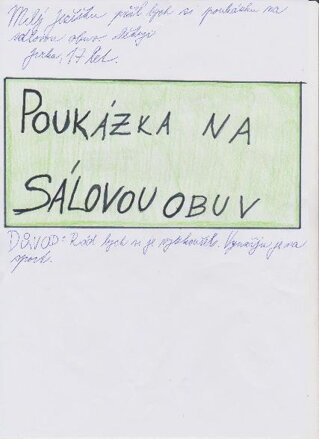 Milý Ježíšku přál bych si poukázku na
sálovou obuv. Děkuji
Jirka, 17 let.
POUKÁZKA NA
SÁLOVOU OBUV
DŮVOD: Rád bych si je vyzkoušel. Využiju je na
sport.